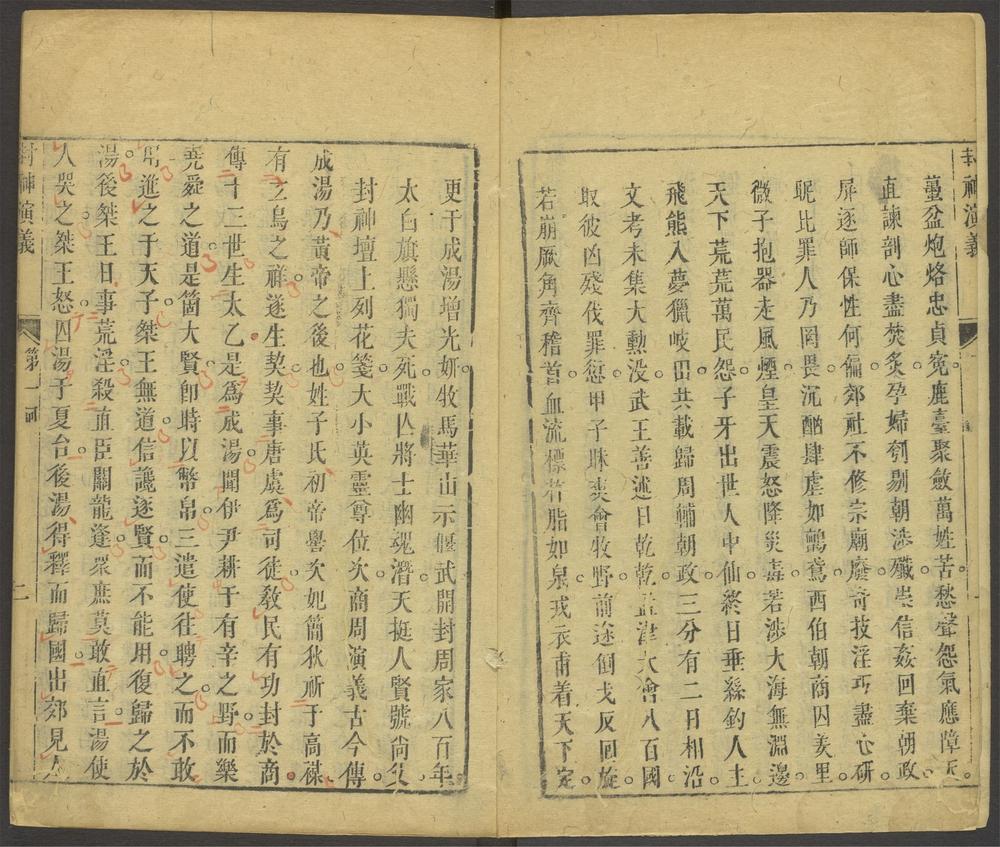 封神演義
蠆盆炮烙忠貞寃鹿臺聚斂萬姓苦愁聲怨氣應障天
直諫剖心盡焚炙孕婦刳剔朝涉殲崇信姦回棄朝政
屏逐師保性何偏郊社不修宗廟廢奇技淫巧盡心研
昵比罪人乃罔畏沉酗肆虐如鸇鳶西伯朝商囚羑里
微子抱器走風煙皇天震怒降災毒若涉大海無淵邊
天下荒荒萬民怨子牙出世人中仙終日垂絲釣人主
飛熊入夢獵岐田共載歸周輔朝政三分有二日相沿
文考未集大勲没武王善述日乾乾孟津大會八百國
取彼凶殘伐罪愆甲子昧爽會牧野前途倒戈反回旋
若崩厥角齊稽首血流標杵脂如泉戎衣甫着天下定
更于成湯增光妍牧馬華山示偃武開封周家八百年
太白旗懸獨夫死戰亾將士幽魂潛天挺人賢號尙父
封神壇上列花箋大小英靈尊位次商周演義古今傳
成湯乃黃帝之後也姓子氏初帝嚳次妃簡狄祈于高禖
有玄鳥之祥遂生契契事唐虞爲司徒敎民有功封於商
傳十三世生太乙是爲成湯聞伊尹耕于有莘之野而樂
堯舜之道是箇大賢卽時以幣帛三遣使往聘之而不敢
用進之于天子桀王無道信讒逐賢而不能用復歸之於
湯後桀王日事荒淫殺直臣關龍逄眾庶莫敢直言湯使
人哭之桀王怒囚湯于夏台後湯得釋而歸國出郊見人
封神演義 第一回 二